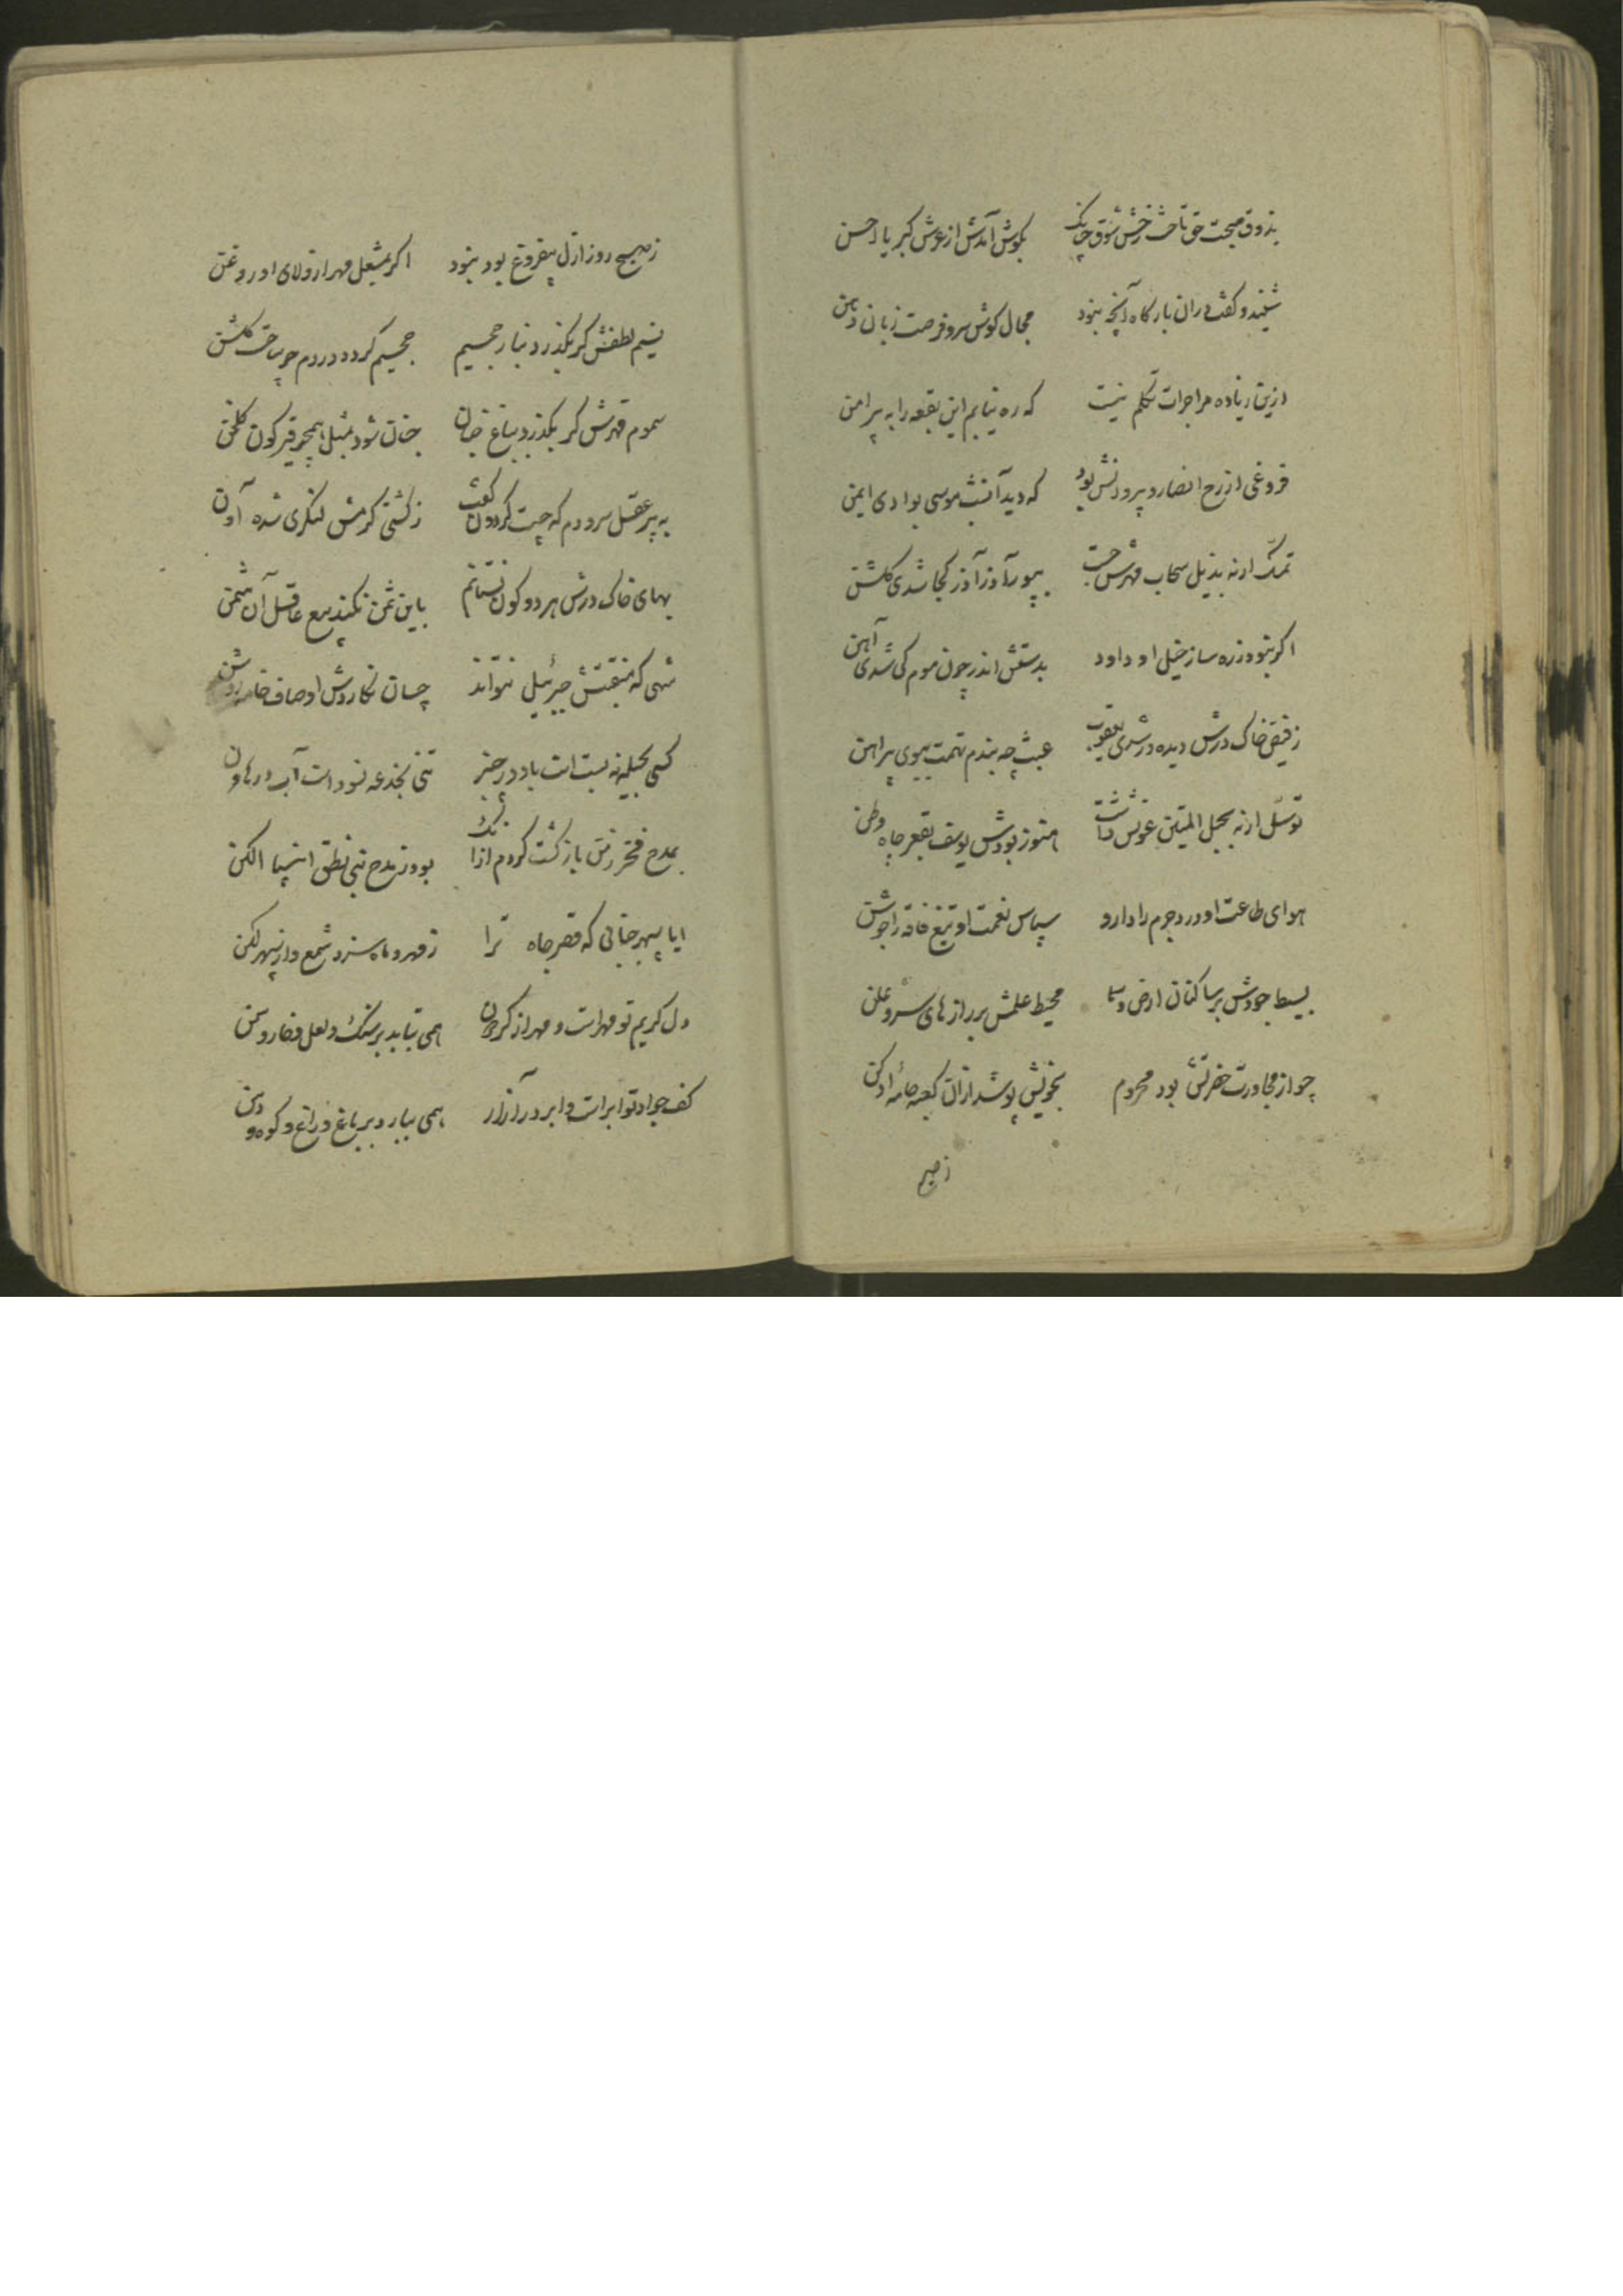 بذوق صحبت حق تاخت رخش شوق چنانک بکوش آمدش از عرش کبریا احسن
شنید و کفت دران بارکاه آنچه نبود مجال کوش سر و فرصت زبان دهن
ازین زیاده مرا جرات تکلم نیست که ره نیابم این بقعه را به پیرامن
فروغی از رخ انصار و پیروانش بود که دید آنشب موسی بوادی ایمن
تمسک ار نه بذیل سحاب مهرش جست بپور آزر آذر کجا شدی کلشن
اکر نبود زره ساز خیل او داود بدستش اندر چون موم کی شدی آهن
ز فیض خاک درش دیده ور شدی یعقوب عبث چه بندم تهمت ببوی پیراهن
توسل ار نه بحبل المتین عونش داشت هنوز بودش یوسف بقعر چاه وطن
هوای طاعت او درد جرم را دارو سپاس نعمت او تیغ فاقه را جوشن
بسیط جودش بر ساکنان ارض و سما محیط علمش بر رازهای سر و علن
چو از مجاورت حضرتش بود محروم بخویش پوشد ازان کعبه جامهٔ ادکن
ز صبح
ز صبح روز ازل بیفروغ بود نبود اکر بمشعل مهر از ولای او روغن
نسیم لطفش کر بکذرد بنار جحیم جحیم کردد در دم چو ساحت کلشن
سموم قهرش کر بکذرد بباغ جنان جنان شود بمثل همچو قیرکون کلخن
به پیر عقل سرودم که چیست کردون کفت ز کشتی کرمش لنکری شده آون
بهای خاک درش هر دو کون نستانم باین ثمن نکند بیع عاقل آن مثمن
شهی که منقبتش جبرئیل نتواند چسان نکاردش اوصاف خامه
کسی بحیله نه بست است باد در چنبر تنی بخدعه نسود است آب در هاون
بمدح فخر زمن بازکشت کردم ازانک بود ز مدح نبی نطق انبیا الکن
ایا سپهر جنابی که قصر جاه ترا ز مهر و ماه سزد شمع و از سپهر لکن
دل کریم تو مهر است و مهر از کردون همی بتابد بر سنک و لعل و خار و سمن
کف جواد تو ابر است و ابر در آزار همی ببارد بر باغ و راغ و کوه و دمن